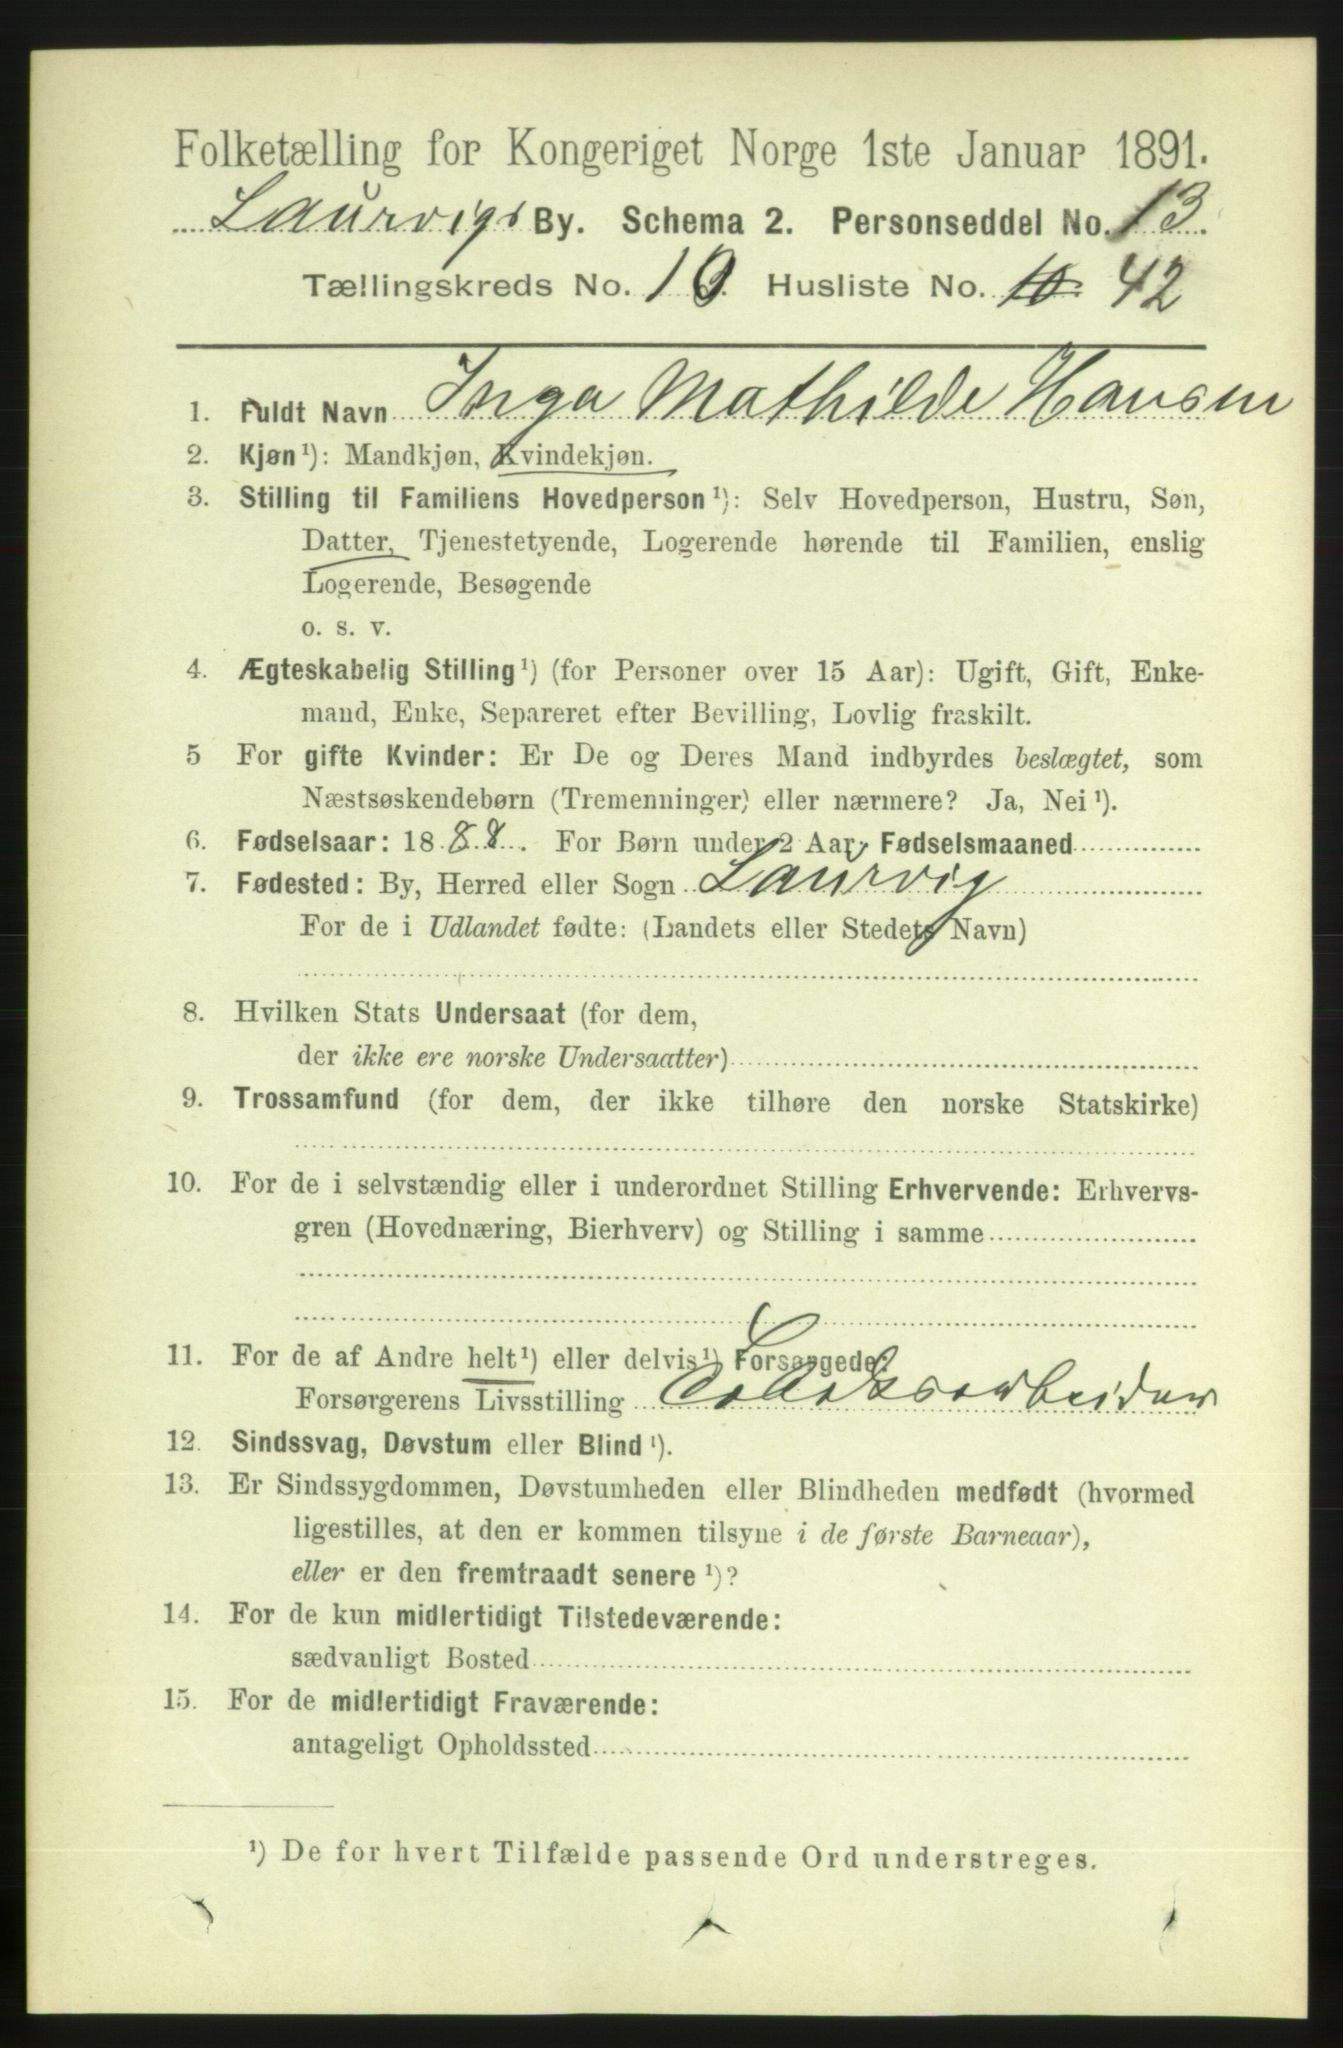 Folketælling for Kongeriget Norge 1ste Januar 1891.
Laurvigs By. Schema 2. Personseddel No. 13.
Tællingskreds No. 10. Husliste No. 10 42
1. Fuldt Navn Inga Mathilde Hansen
2. Kjøn¹): Mandkjøn, Kvindekjøn.
3. Stilling til Familiens Hovedperson¹): Selv Hovedperson, Hustru, Søn,
Datter, Tjenestetyende, Logerende hørende til Familien, enslig
Logerende, Besøgende
o. s. v.
4. Ægteskabelig Stilling¹) (for Personer over 15 Aar): Ugift, Gift, Enke-
mand, Enke, Separeret efter Bevilling, Lovlig fraskilt.
5 For gifte Kvinder: Er De og Deres Mand indbyrdes beslægtet, som
Næstsøskendebørn (Tremenninger) eller nærmere? Ja, Nei¹).
6. Fødselsaar: 1888. For Børn under 2 Aar, Fødselsmaaned
7. Fødested: By, Herred eller Sogn Laurvig
For de i Udlandet fødte: (Landets eller Stedets Navn)
8. Hvilken Stats Undersaat (for dem,
der ikke ere norske Undersaatter)
9. Trossamfund (for dem, der ikke tilhøre den norske Statskirke)
10. For de i selvstændig eller i underordnet Stilling Erhvervende: Erhvervs-
gren (Hovednæring, Bierhverv) og Stilling i samme
11. For de af Andre helt¹) eller delvis¹) Forsørgede:
Forsørgerens Livsstilling
12. Sindssvag, Døvstum eller Blind¹).
13. Er Sindssygdommen, Døvstumheden eller Blindheden medfødt (hvormed
ligestilles, at den er kommen tilsyne i de første Barneaar),
eller er den fremtraadt senere¹)?
14. For de kun midlertidigt Tilstedeværende:
sædvanligt Bosted
15. For de midlertidigt Fraværende:
antageligt Opholdssted
¹) De for hvert Tilfælde passende Ord understreges.